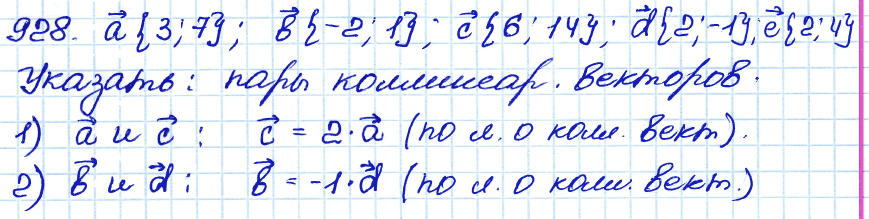 928. a⃗ {3; 7}; b⃗ {-2; 1}; c⃗ {6; 14}; d⃗ {2; -1}; e⃗ {2; 4}
Указать: пары коллинеар. векторов.
1) a⃗ и c⃗ : c⃗ = 2·a⃗ (по л. о колл. вект).
2) b⃗ и d⃗ : b⃗ = -1·d⃗ (по л. о колл. вект.)